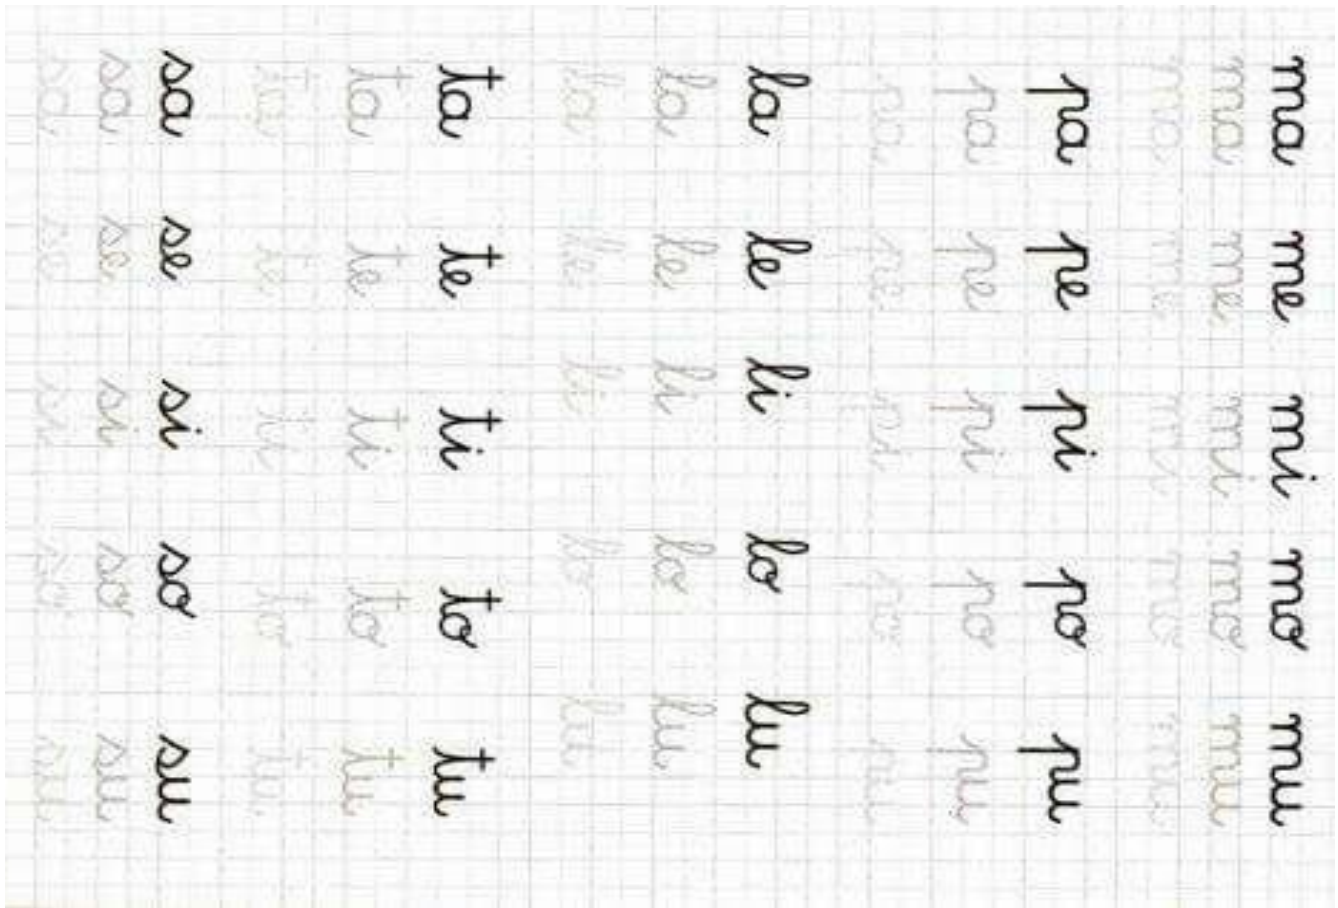 ma me mi mo mu
ma me mi mo mu
ma me mi mo mu
pa pe pi po pu
pa pe pi po pu
pa pe pi po pu
la le li lo lu
la le li lo lu
la le li lo lu
ta te ti to tu
ta te ti to tu
ta te ti to tu
sa se si so su
sa se si so su
sa se si so su